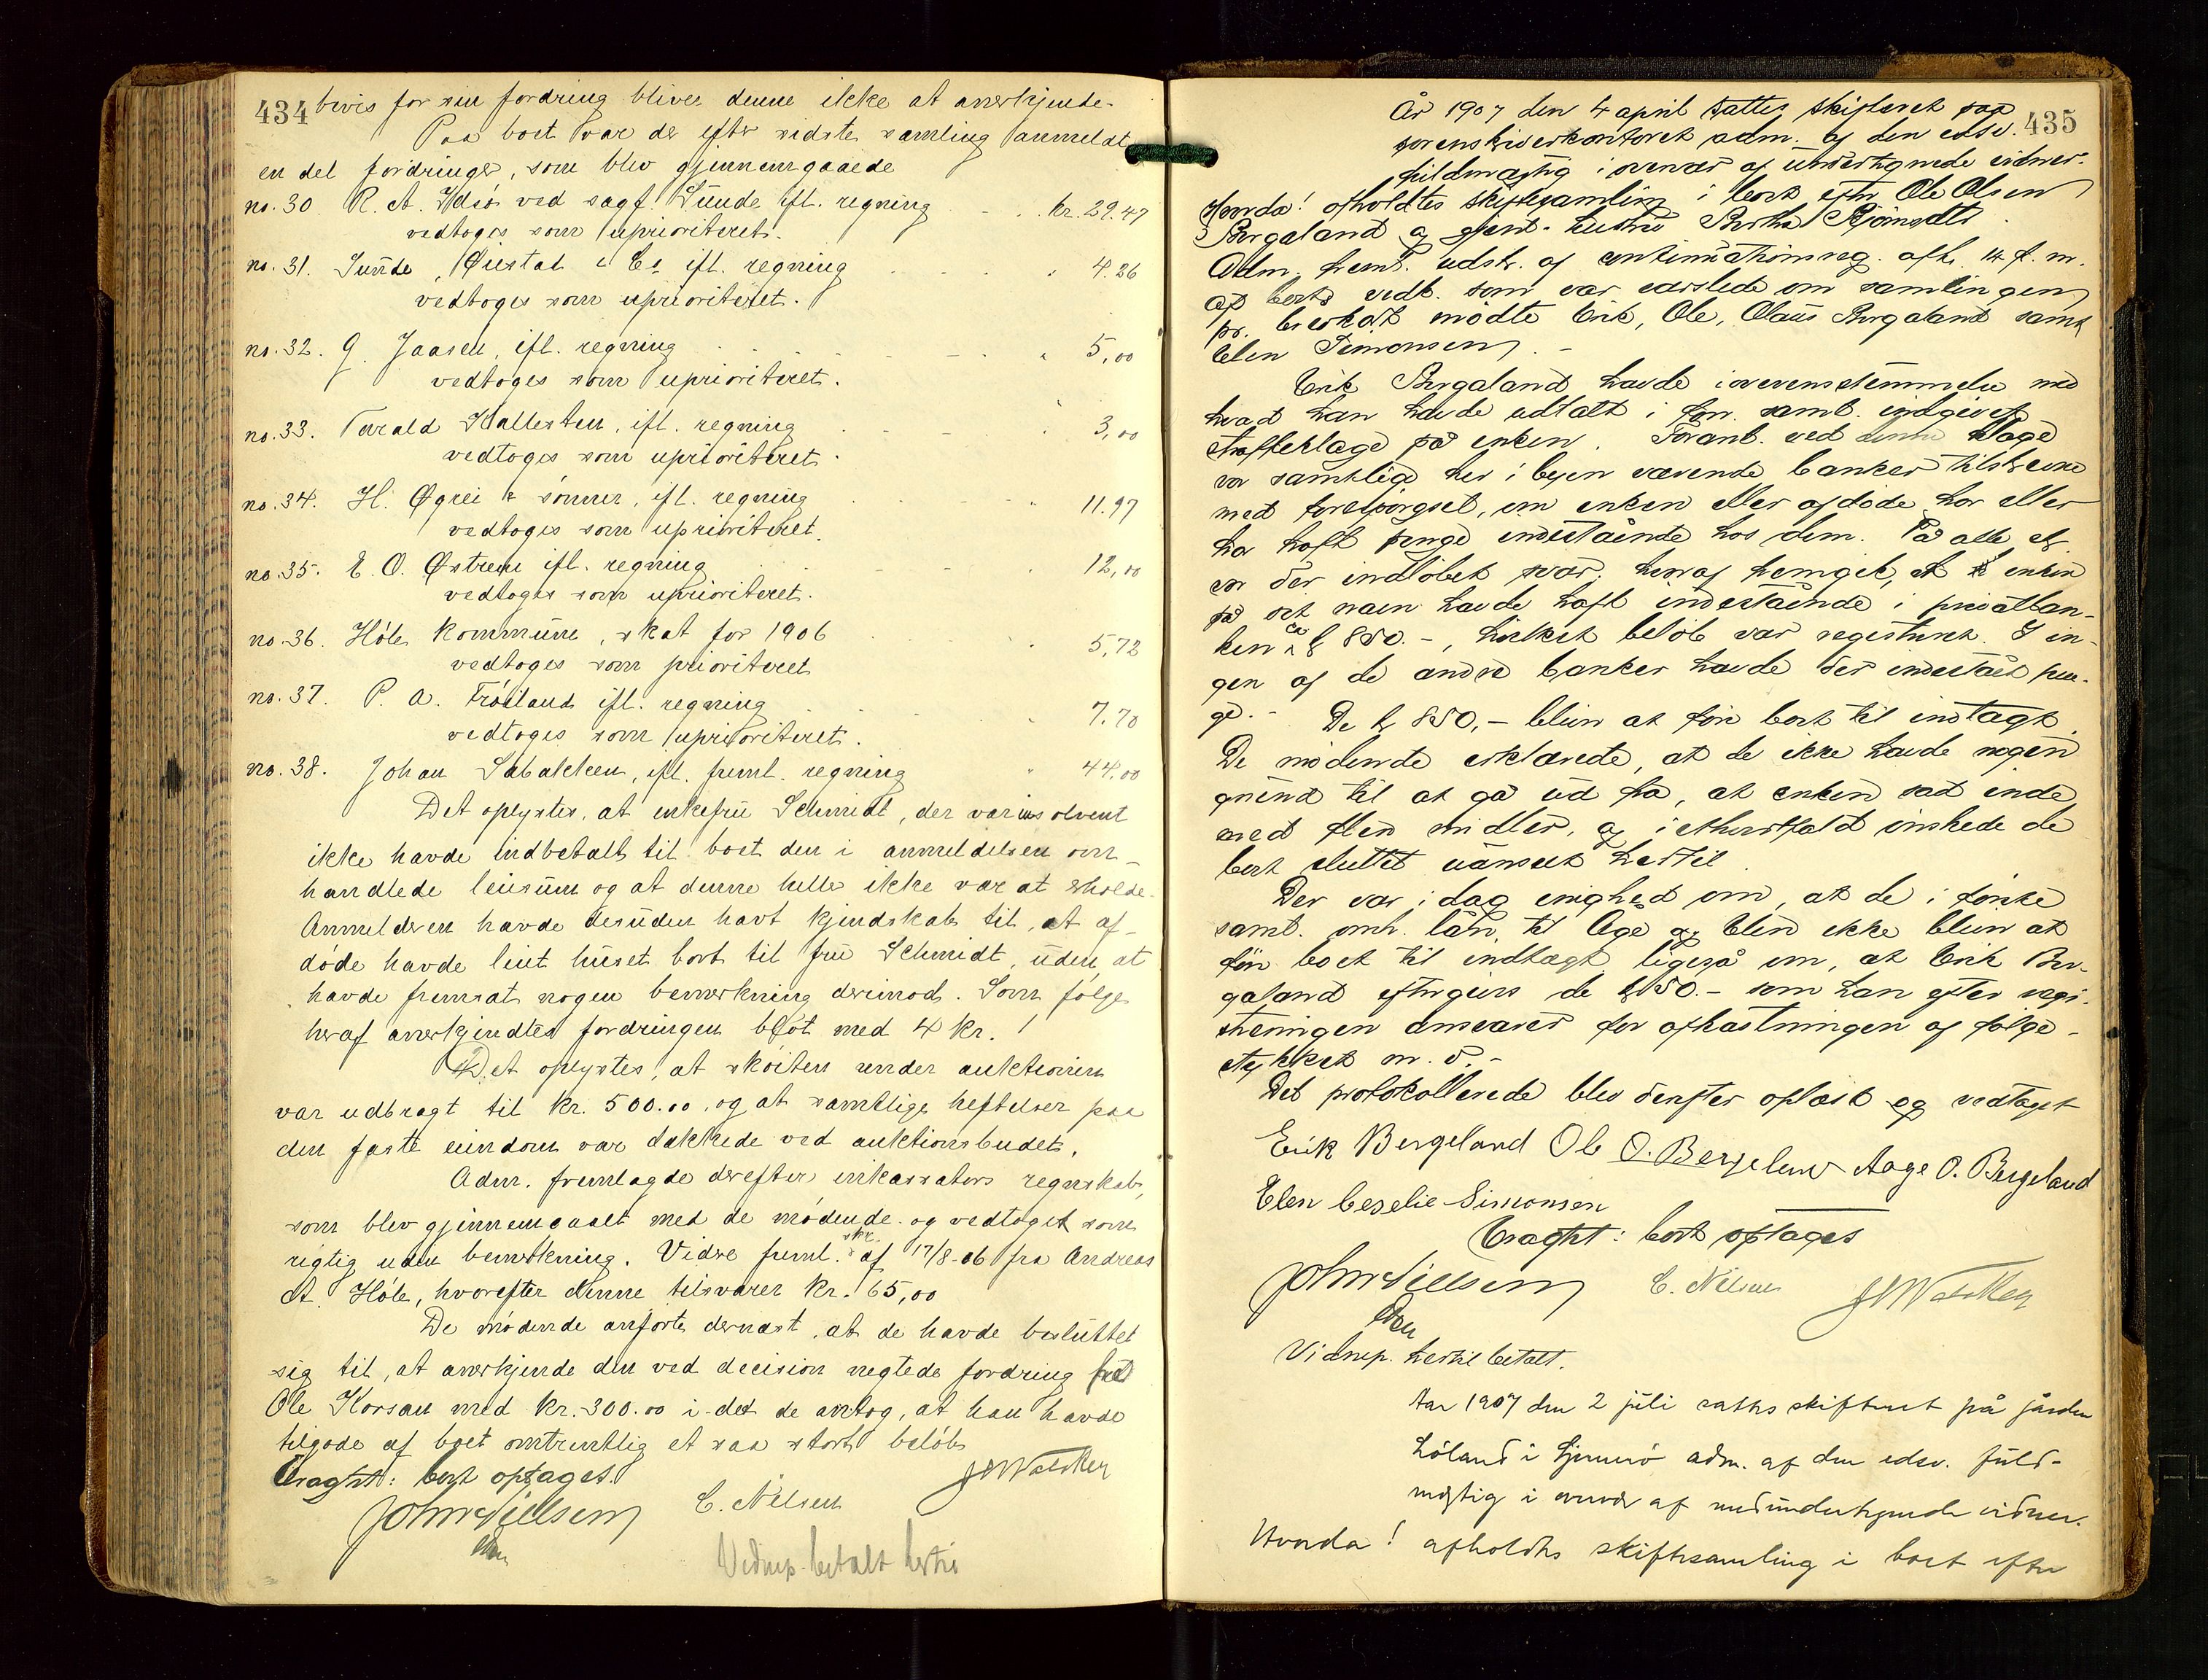 434 bevis for sin fordring bliver denne ikke at anerkjende.
Paa boet var der efter sidste samling anmeldt
en del fordringer, som blev gjennemgaaede
no. 30 R. A. Idsø ved sagf. Sunde ifl. regning kr. 29.47
vedtoges som uprioriteret.
no. 31. Sunde, Øiestad & Co ifl. regning " 4.26
vedtoges som uprioriteret.
no. 32. G. Jaasen, ifl. regning " 5,00
vedtoges som uprioriteret.
no. 33. Tarald Hallesten, ifl. regning " 3,00
vedtoges som uprioriteret.
no. 34. H. Øgrei & sønner, ifl. regning " 11.97
vedtoges som uprioriteret.
no. 35. E. O. Østrem ifl. regning " 12,00
vedtoges som uprioriteret.
no. 36. Høle kommune, skat for 1906 " 5,72
vedtoges som prioriteret
no. 37. P. A. Frøiland ifl. regning " 7.70
vedtoges som uprioriteret.
no. 38. Johan Sabakken, ifl. freml. regning " 44.00
Det oplystes, at enkefru Schmidt, der var insolvent
ikke havde indbetalt til boet den i anmeldelsen om-
handlede leiesum og at denne heller ikke var at erholde.
Anmelderen havde desuden havt kjendskab til, at af-
døde havde leiet huset bort til fru Schmidt, uden at
havde fremsat nogen bemerkning derimod. Som følge
heraf anerkjendtes fordringen blot med 4 kr.
Det oplystes, at skøiten under auktionen
var udbragt til kr. 500.00, og at samtlige heftelser paa
den faste eiendom var dækkede ved auktionsbudet.
Adm. fremlagde derefter inkassators regnskab,
som blev gjennemgaaet med de mødende og vedtoget som
rigtig uden bemerkning. Videre freml. skr. af 17/8-06 fra Andreas
A. Høle, hvorefter denne tilsvarer kr. 65,00
De mødende anførte dernæst, at de havde besluttet
sig til, at anerkjende den ved decision negtede fordring fra
Ole Horsau med kr. 300.00 i det de antog, at han havde
tilgode af boet omtrentlig et saa stort beløb
Eragtet: boet optages.
John Nielsen C. Nilsen
Vidnep. betalt hertil
435
År 1907 den 4 april sattes skifteret paa
sorenskriverkontoret adm. af den edsv.
fuldmægtig i overvær af undertegnede vidner.
Hvorda! afholdtes skiftesamling i boet efter Ole Olsen
Bergaland og gjenl. hustru Bertha
Adm. freml. udskr. af extinationsreg. afh. 14 f. m.
Af boets vedk. som var varslede om samlingen
pr. brevkort mødte Erik, Ole, Olaus Bergaland samt
Elen Simonsen. -
Erik Bergaland havde i overensstemmelse med
hvad han havde udtalt i forr. saml. indgivet
straffeklage på enken. Foranl. ved denne klage
var samtlige her i byen værende banker tilskrevne
med forespørgsel, om enken eller afdøde har eller
har haft penge indestående hos dem. På alle
var der indløbet svar; heraf fremgik, at enken
på sit navn havde haft indestående i privatban-
ken ca kr 850.-, hvilket beløb var registreret. I in-
gen af de andre banker havde der indestået pen-
ge. - De kr 850,- bliver at føre boet til indtægt.
De mødende erklærede, at de ikke havde nogen
grund til at gå ud fra, at enken sad inde
med flere midler, og i ethvertfald ønskede de
boet sluttet uanseet hertil.
Der var i dag enighed om, at de i første
saml. omh. lån til Åge og Elen ikke bliver at
føre boet til indtægt ligeså om, at Erik Ber-
galand eftergives de kr 150.- som han efter regi-
streringen ansvarer for afkastningen af følge-
stykket m. v. -
Det protokollerede blev derefter oplæst og vedtaget
Erik Bergeland Ole O. Bergeland Aage O. Bergeland
Elen Ceselie Simonsen
Eragtet: boet optages
John Nielsen C. Nilsen
Vidnep. hertil betalt.
Aar 1907 den 2 juli sattes skifteret på gården
Løland i Hjemmø adm. af den edsv. fuld-
mægtig i overvær af medundertegnede vidner.
Hvorda! afholdtes skiftesamling i boet efter